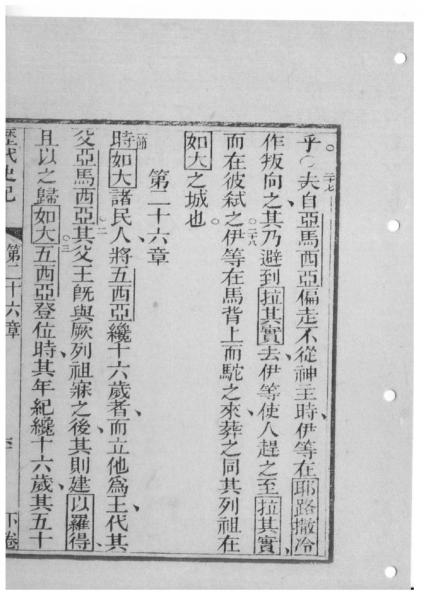 乎○夫自亞馬西亞偏走不從神主時伊等在耶路撒冷
作叛向之其乃避到拉其實去伊等使人趕之至拉其實
而在彼弒之伊等在馬背上而駝之來葬之同其列祖在
如大之城也
第二十六章
時如大諸民人將五西亞纔十六歲者而立他為王代其
父亞馬西亞其父王旣與厥列祖寐之後其則建以羅得
且以之歸如大五西亞登位時其年紀纔十六歲其五十
歷代史記 第二十六章 下卷